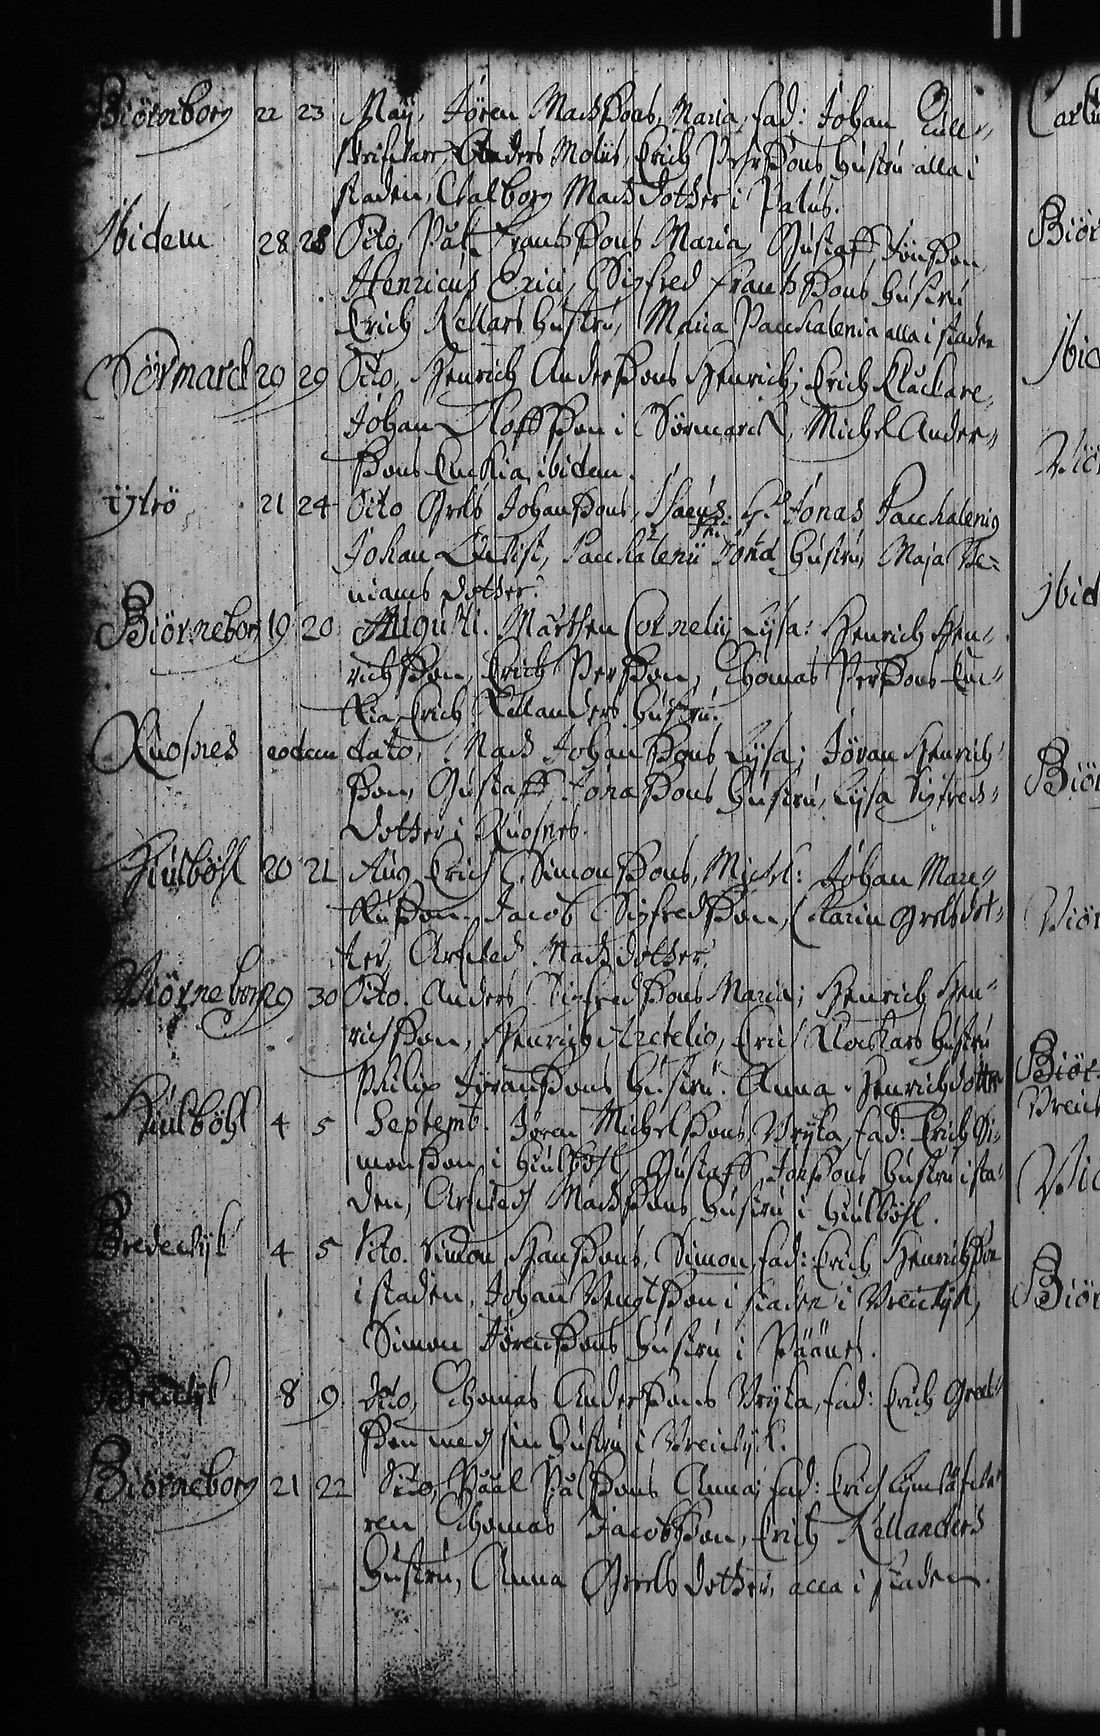 Biörneborg 22 23 Maÿ, Jören MadsSons, Maria, fad: Johan Tull-,
skrifware, Anders Moliis, Erich PehrSons hustru alla i
staden, Walborg Mads dotter i Palus.
Ibidem 28 28 Dito, Påhl FransSons Maria, Gustaff JönsSon
Henricus Erici, Sigfred FransSons hustru
Erich Kellars hustru, Maria Paschalenia alla i staden
Sörmarck 29 29 Dito, Henrich AndersSons Henrich; Erich Klåckare,
Johan OloffSon i Sörmarck, Michel Ander-,
Sons Enckia, ibidem.
ÿtrö 21 24 Dito Grels JohanSons, Isacus. H. Jonas Paschalenig
Johan Paschalenii hustru, Maja Be-
niams dotter.
Biörneborg 19 20 Augusti. Mårthen Cornelij Lÿsa: Henrich Hen-,
richSon, Erich PerSon, Thomas PerSons En-,
Kia, Erich Kellanders hustru.
Ruosnes eodem dato, Mads JohanSons Lÿsa; Jöran Henrich-
Son, Gustaff JönaSons hustru, Lÿsa Sigfreds-
dotter i Ruosnes.
Hiulböhl 20 21 Aug Erich SimonSons, Michel: Johan Mar-,
kuSon, Jacob SigfredSon, Karin Grelsdot-,
ter, Mads dotter.
Biörneborg 29 30 Dito. Anders SigfredSons Maria; Henrich Hen-
richSon, Henrich Arctelig, Erich Klockars hustru
Philip JöranSons hustru. Anna Henrichdotter
Hiulböhl 4 5 Septemb. Jören MichelSons Wryta, fad: Erich Si-,
monSon i Hiulböhl, Gustaff JonSons hustru i sta-
den, MadsSons hustru i Hiulböhl.
Bredewÿk 4 5 Dito. Simon HansSons, Simon, fad: Erich HenrichSon
i staden, Johan BengtSon i staden i Breewÿk,
Simon JörenSons hustru i Påånes.
Breewÿk 8 9 dito, Thomas AndersSons Wryta, fad: Erich Grels-
Son med sin hustru i Breiwÿk.
Biörneborg 21 22 Dito, Påål PålSons Anna; fad: Erich
ren, Thomas JacobSon, Erich Kellanders
hustru, Anna Grels dotter, alla i staden.
Carl
Biör
Ibid
Wiör
Ibid
Biör
Wiör
Biör
Breiw
Wiö
Biör